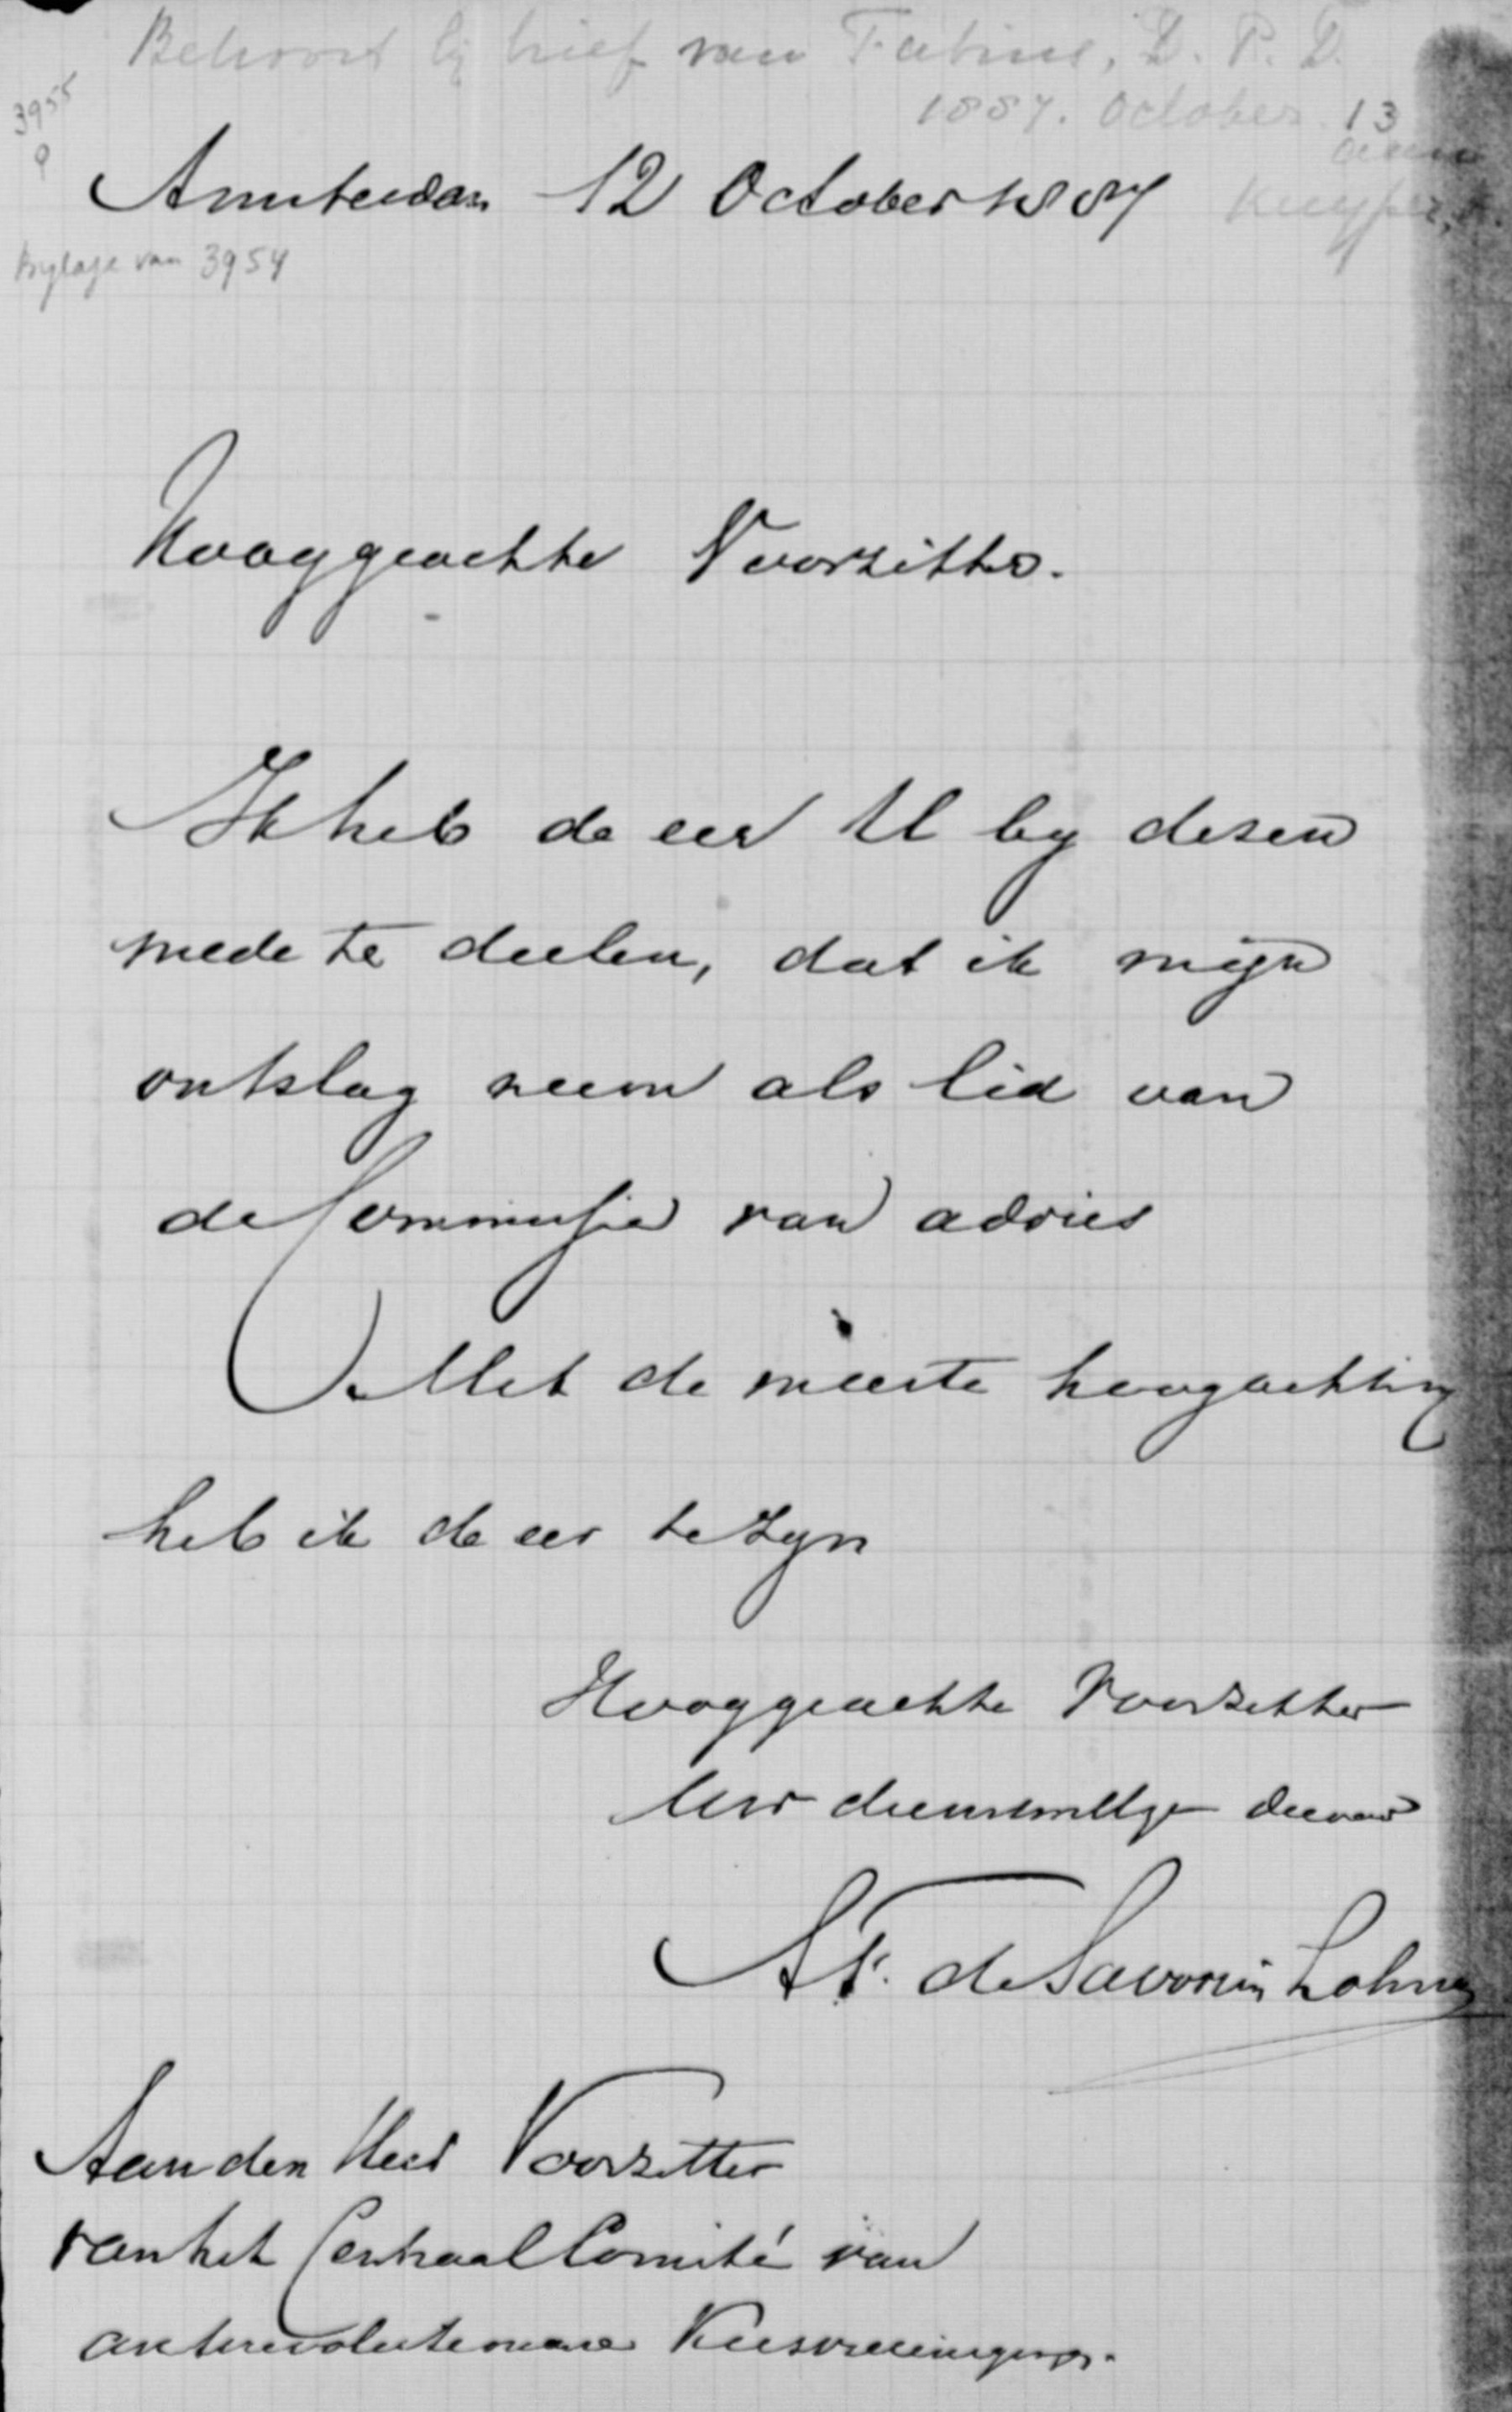 Behoort bij brief van Fabius, D. P. D.
1887. October 13
aan
Kuyper, A.
3955
a
Amsterdam 12 October 1887
Bylage van 3954
Hooggeachte Voorzitter.
Ik heb de eer U by dezen
mede te deelen, dat ik mijn
ontslag neem als lid van
de Commissie van advies
Met de meeste hoogachting
heb ik de eer te zyn
Hooggeachte Voorzitter
Uw dienstwillige dienaar
A F. de Savornin Lohman
Aan den Heer Voorzitter
van het Centraal Comité van
antirevolutionaire Kiesvereenigingen.